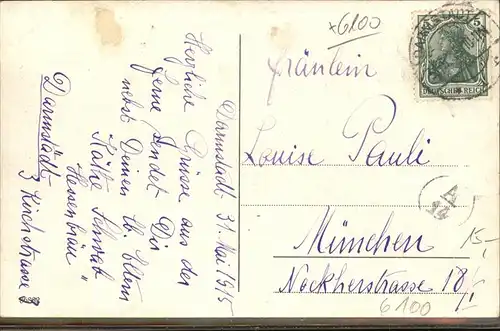 Darmstadt 31. Mai 1915
Herzliche Grüsse aus der
Ferne sendet Dir
nebst Deinen lb. Eltern
Käthe Schwab
"Hessenbräu"
Darmstadt
3 Kirchstrasse
x6100
Fräulein
Louise Pauli
München
Nockherstrasse 18/I
6100
15,-
5
DEUTSCHES REICH
DARMSTADT